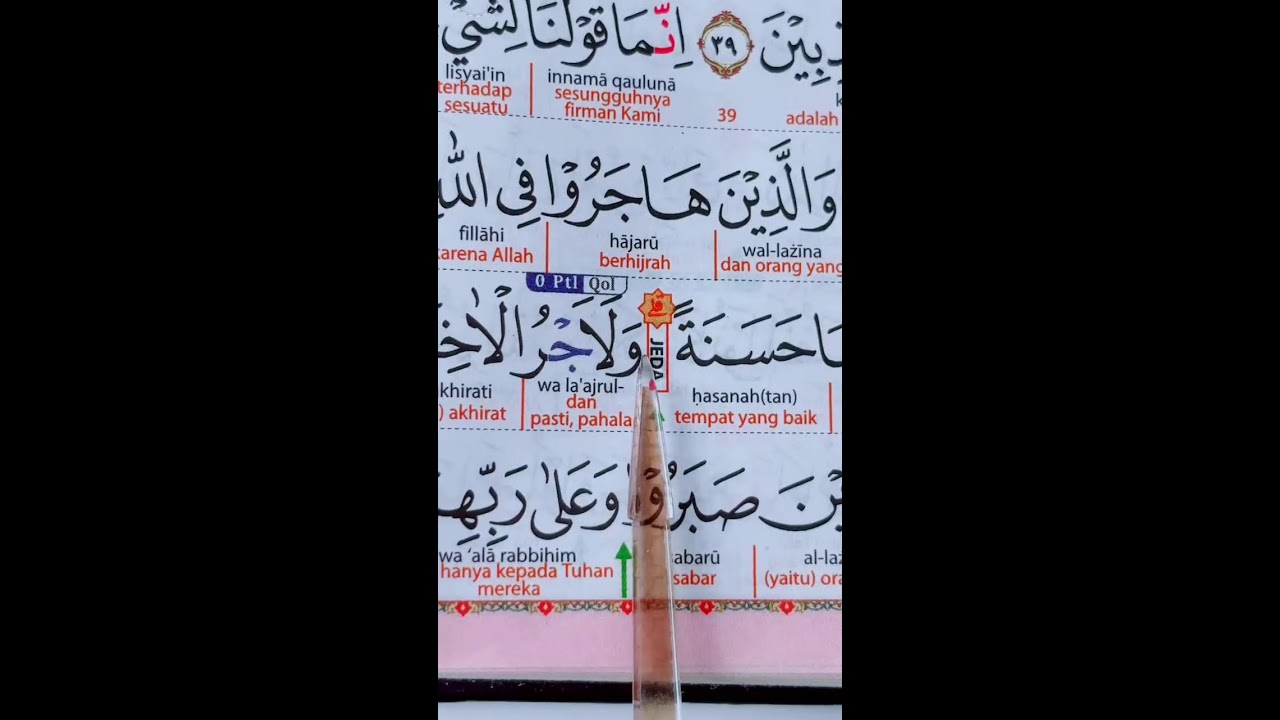 اِنَّمَا قَوْلُنَا لِشَيْ ٣٩ ذِبِيْنَ
lisyai'in innamā qaulunā
terhadap sesuatu sesungguhnya firman Kami 39 adalah
وَالَّذِيْنَ هَاجَرُوْا فِى اللّٰهِ
fillāhi hājarū wal-lażīna
karena Allah berhijrah dan orang yang
0 Ptl Qol
حَسَنَةً ۗ وَلَاَجْرُ الْاٰخِ
JEDA
khirati wa la'ajrul- ḥasanah(tan)
) akhirat dan pasti, pahala tempat yang baik
يْنَ صَبَرُوْا وَعَلٰى رَبِّهِ
wa ‘alā rabbihim abarū al-laż
hanya kepada Tuhan mereka sabar (yaitu) ora